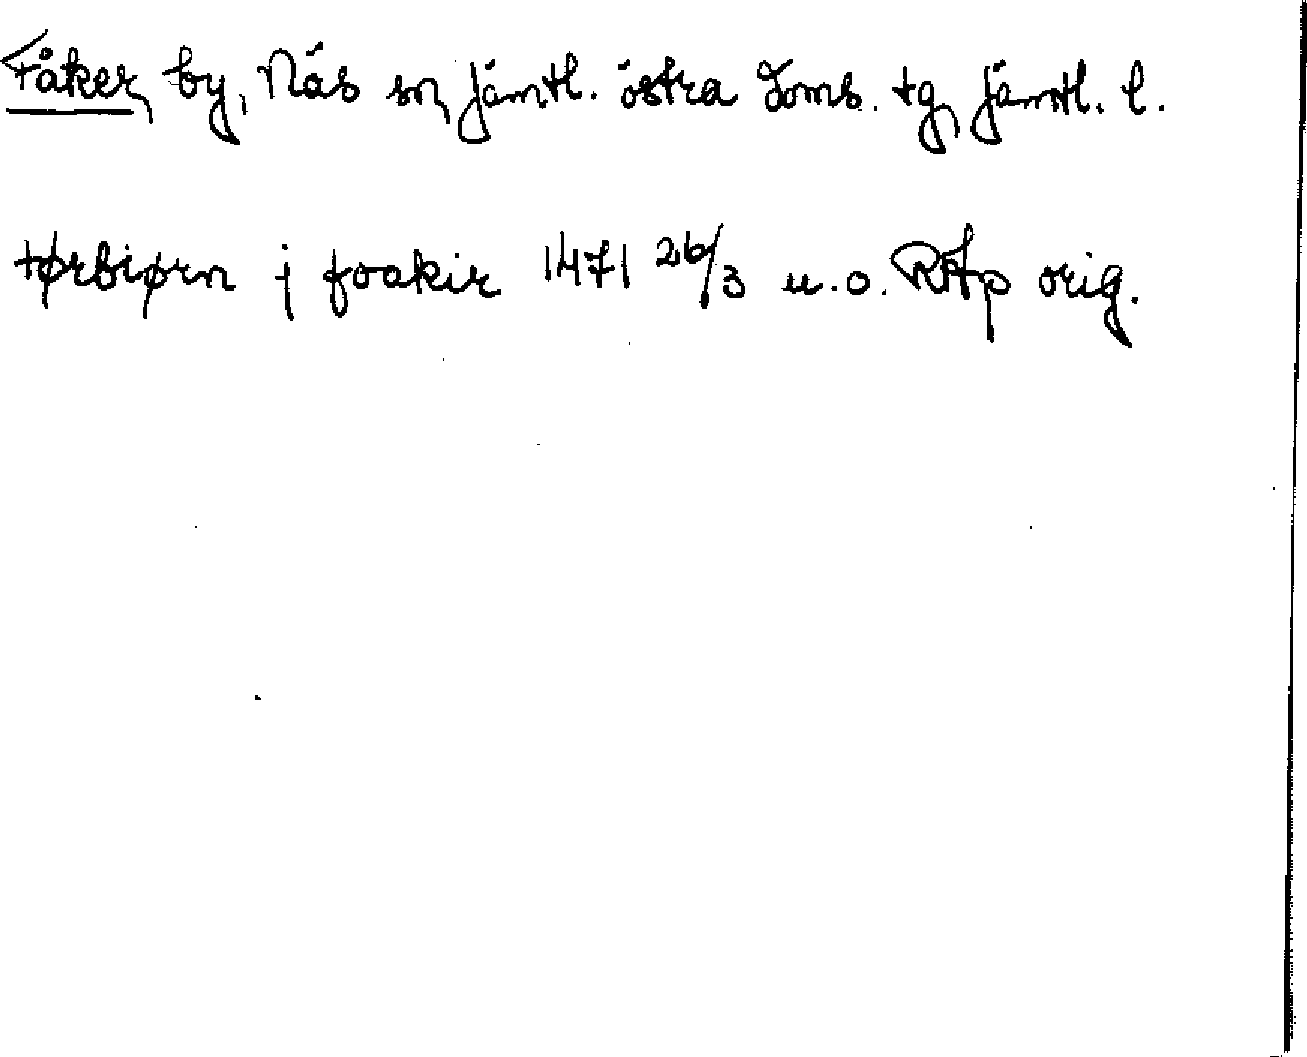 Fåker, by, Näs sn, Jämtl. östra Doms. tg, Jämtl. l.
tørbiørn j foakir 1471 26/3 u.o. RAp orig.